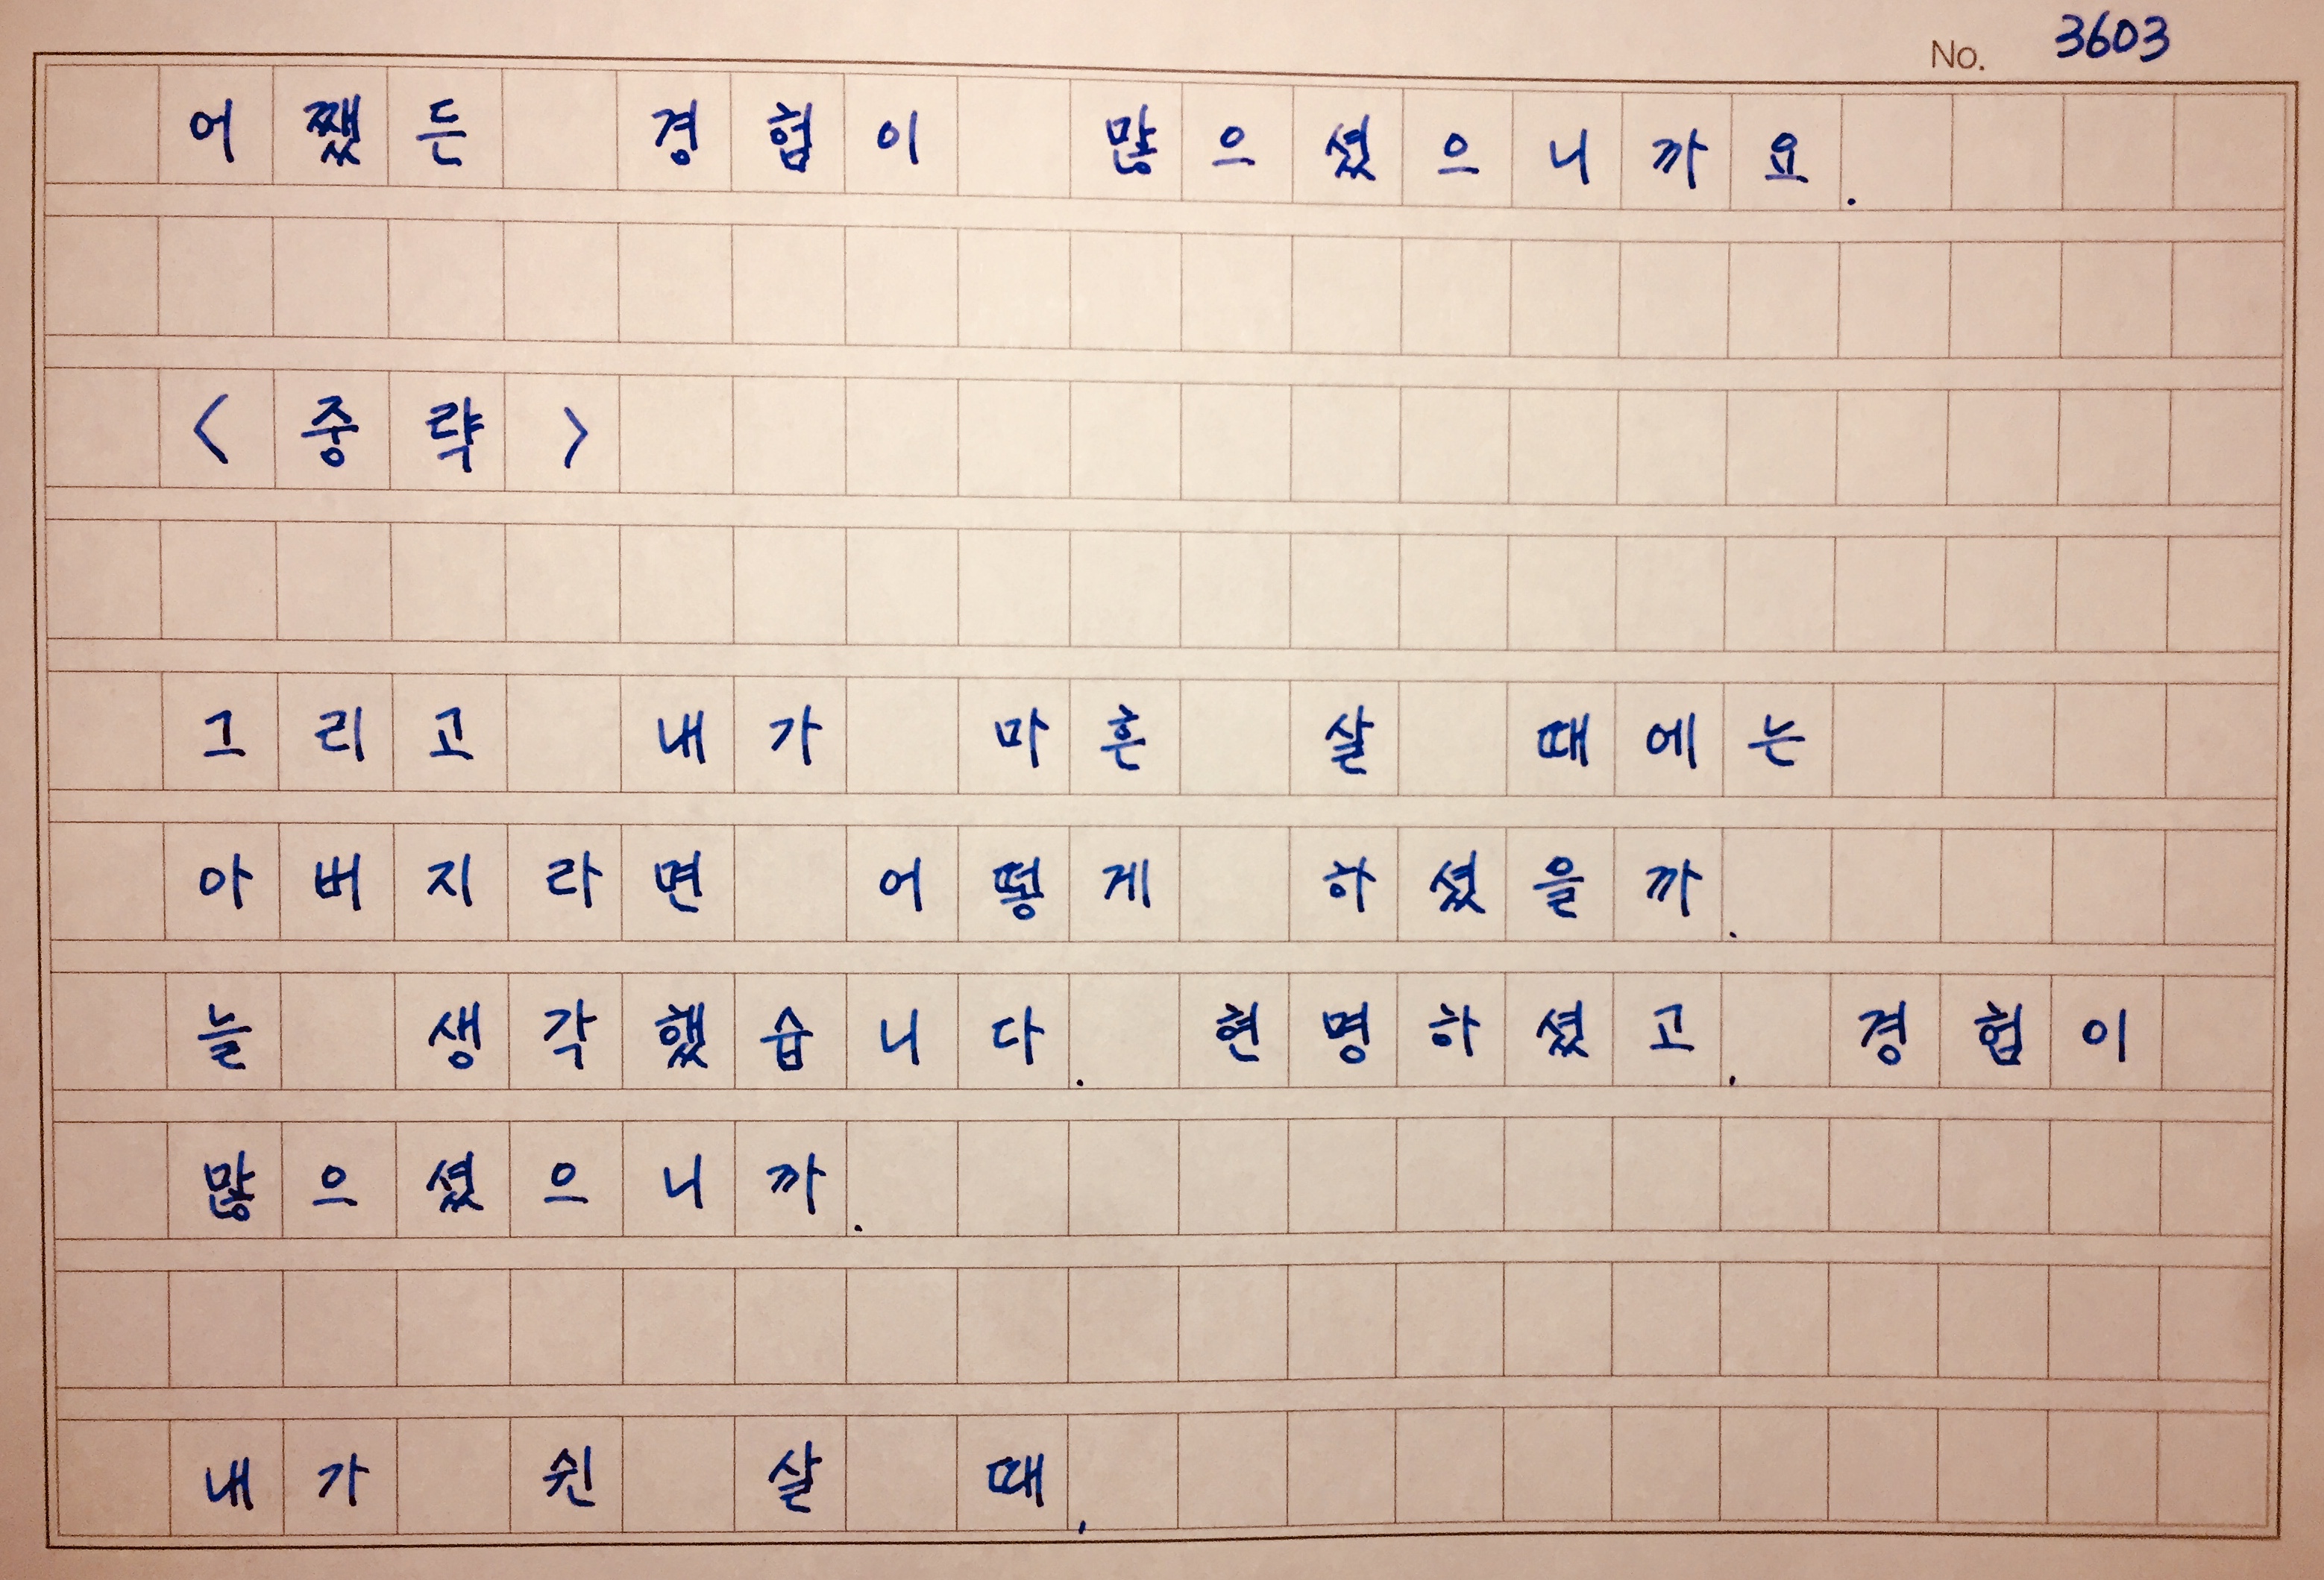 No. 3603
어쨌든 경험이 많으셨으니까요.
<중략>
그리고 내가 마흔 살 때에는
아버지라면 어떻게 하셨을까.
늘 생각했습니다. 현명하셨고. 경험이
많으셨으니까.
내가 쉰 살 때,